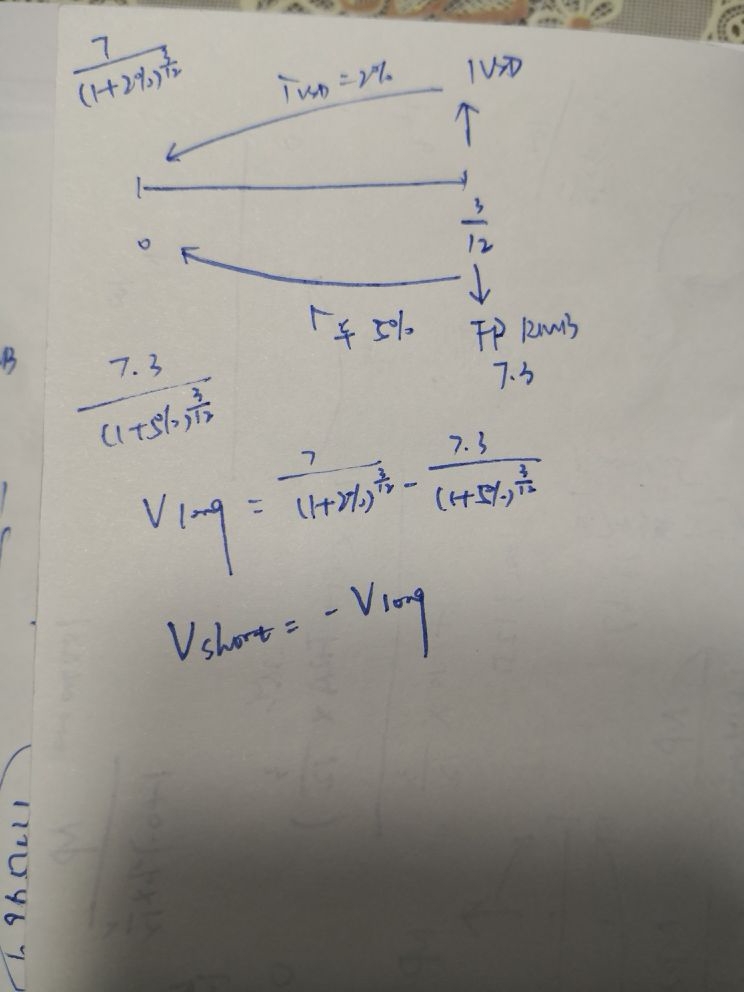 7/(1+2%)^(3/12)
r USD = 2%
1 USD
0
3/12
r ¥ 5%
FP RMB
7.3
7.3/(1+5%)^(3/12)
V long = 7/(1+2%)^(3/12) - 7.3/(1+5%)^(3/12)
V short = - V long
B